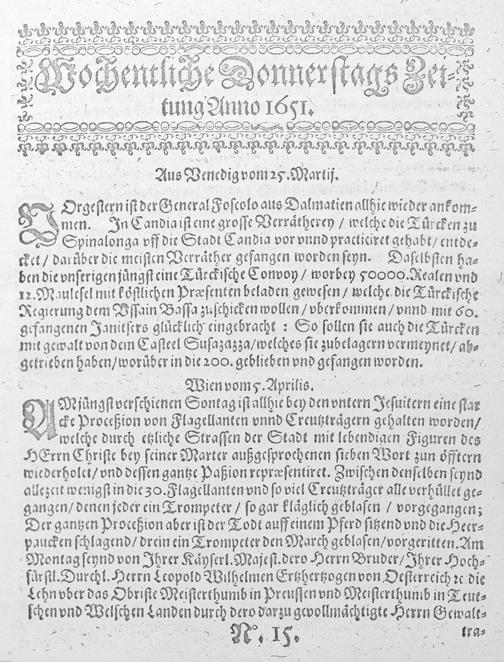 Wochentliche Donnerstags Zei-
tung Anno 1651.
Aus Venedig vom 25. Martij.
VOrgestern ist der General Foscolo aus Dalmatien allhie wieder ankom-
men. In Candia ist eine grosse Verrätherey / welche die Türcken zu
Spinalonga vff die Stadt Candia vor vnnd practiciret gehabt / entde-
cket / darüber die meisten Verräther gefangen worden seyn. Daselbsten ha-
ben die vnserigen jüngst eine Türckische Convoy / worbey 50000. Realen vnd
12. Maulesel mit köstlichen Præsenten beladen gewesen / welche die Türckische
Regierung dem Vssain Bassa zuschicken wollen / vberkommen / vnnd mit 60.
gefangenen Janitsers glücklich eingebracht : So sollen sie auch die Türcken
mit gewalt von dem Casteel Susazazza / welches sie zubelagern vermeynet / ab-
getrieben haben / worüber in die 200. geblieben vnd gefangen worden.
Wien vom 5. Aprilis.
AM jüngst verschienen Sontag ist allhie bey den vntern Jesuitern eine star
cke Proceßion von Flagellanten vnnd Creutzträgern gehalten worden /
welche durch etzliche Strassen der Stadt mit lebendigen Figuren des
HErrn Christe bey seiner Marter außgesprochenen sieben Wort zun öfftern
wiederholet / vnd dessen gantze Paßion repræsentiret. Zwischen denselben seynd
allezeit wenigst in die 30. Flagellanten vnd so viel Creutzträger alle verhüllet ge-
gangen / denen jeder ein Trompeter / so gar kläglich geblasen / vorgegangen ;
Der gantzen Proceßion aber ist der Todt auff einem Pferd sitzend vnd die Heer-
paucken schlagend / drein ein Trompeter den March geblasen / vorgeritten. Am
Montag seynd von Ihrer Käyserl. Majest. dero Herrn Bruder / Ihrer Hoch-
fürstl. Durchl. Herrn Leopold Wilhelmen Ertzhertzogen von Oesterreich ꝛc. die
Lehn vber das Obriste Meisterthumb in Preussen vnd Meisterthumb in Teut-
schen vnd Welschen Landen durch dero darzu gevollmächtigte Herrn Gewalt-
N. 15.
tra-